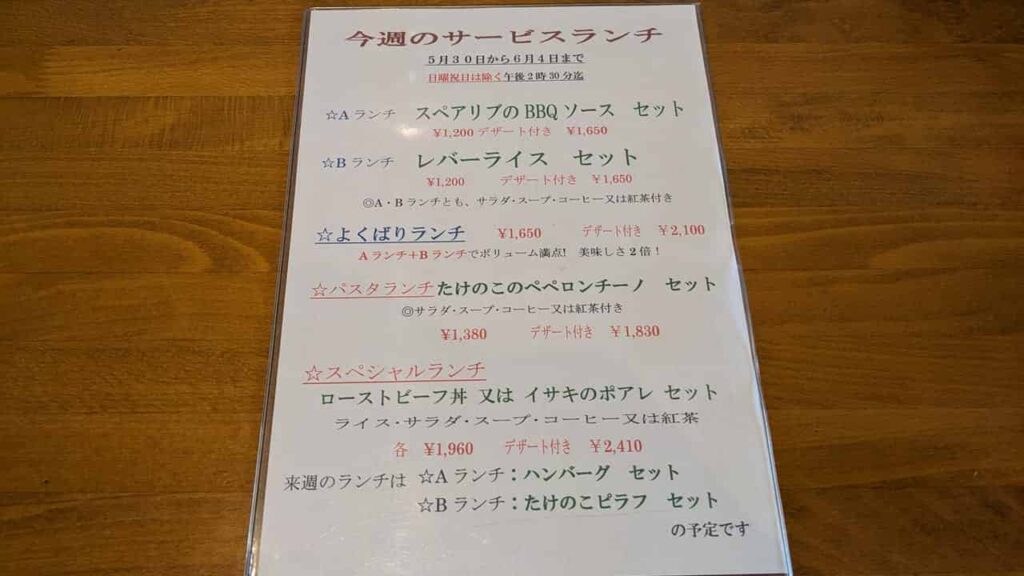 今週のサービスランチ
5月30日から6月4日まで
日曜祝日は除く午後2時30分迄
☆Aランチ　スペアリブのBBQソース　セット
¥1,200 デザート付き　¥1,650
☆Bランチ　レバーライス　セット
¥1,200　デザート付き　¥1,650
◎A・Bランチとも、サラダ・スープ・コーヒー又は紅茶付き
☆よくばりランチ　¥1,650　デザート付き　¥2,100
Aランチ+Bランチでボリューム満点!　美味しさ2倍！
☆パスタランチ たけのこのペペロンチーノ　セット
◎サラダ・スープ・コーヒー又は紅茶付き
¥1,380　デザート付き　¥1,830
☆スペシャルランチ
ローストビーフ丼 又は イサキのポアレ セット
ライス・サラダ・スープ・コーヒー又は紅茶
各　¥1,960　デザート付き　¥2,410
来週のランチは　☆Aランチ：ハンバーグ　セット
☆Bランチ：たけのこピラフ　セット
の予定です